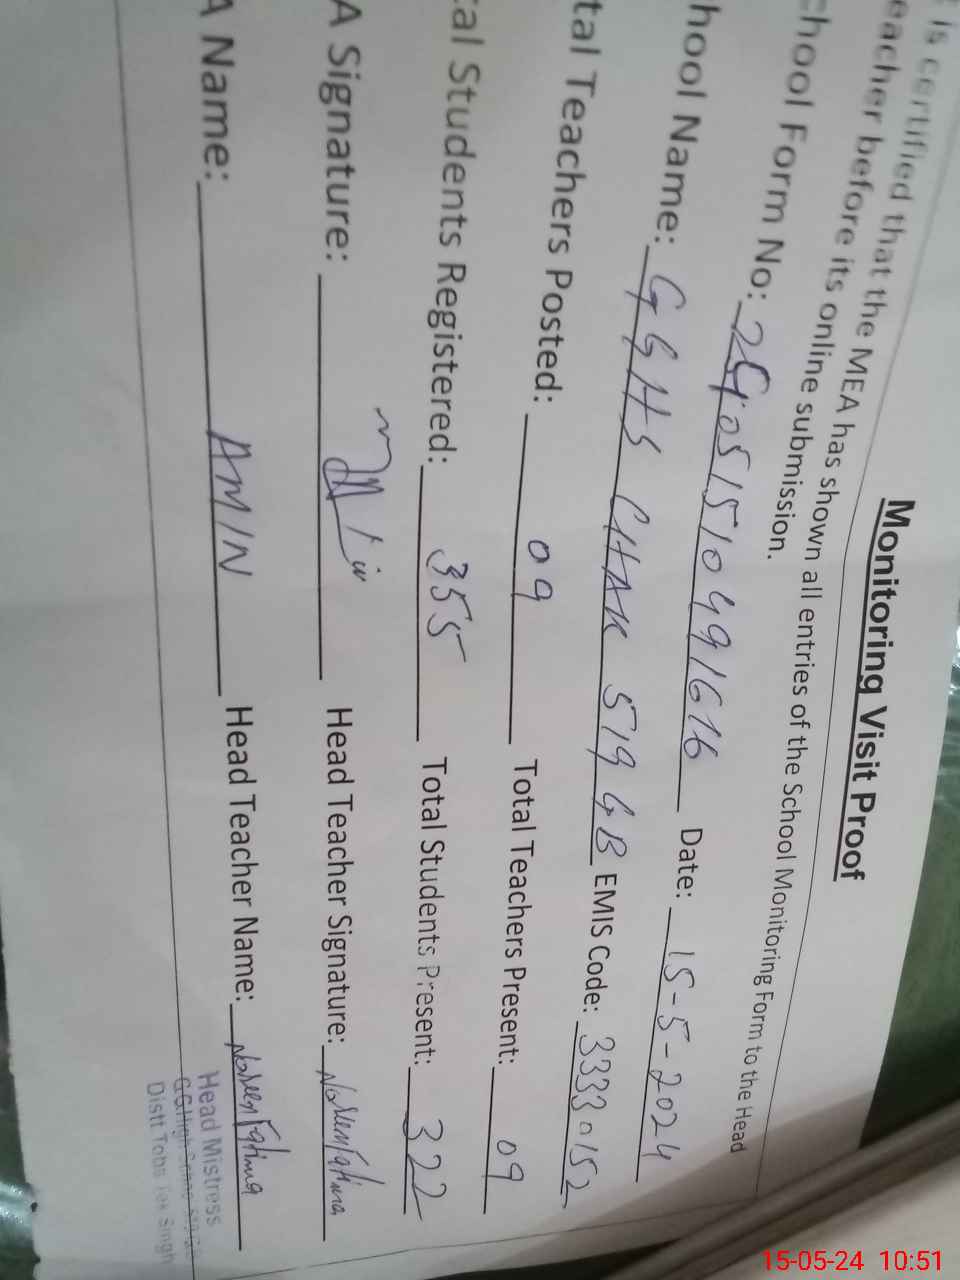 Monitoring Visit Proof
is certified that the MEA has shown all entries of the School Monitoring Form to the Head
eacher before its online submission.
chool Form No: 24051510491616 Date: 15-5-2024
hool Name: GGHS CHAK 519 GB EMIS Code: 33330152
tal Teachers Posted: 09 Total Teachers Present: 09
tal Students Registered: 355 Total Students Present: 322
A Signature: Head Teacher Signature: Noreen Fatima
A Name: AMIN Head Teacher Name: Noreen Fatima
Head Mistress
G.G. High
Distt Toba Tek Singh
15-05-24 10:51